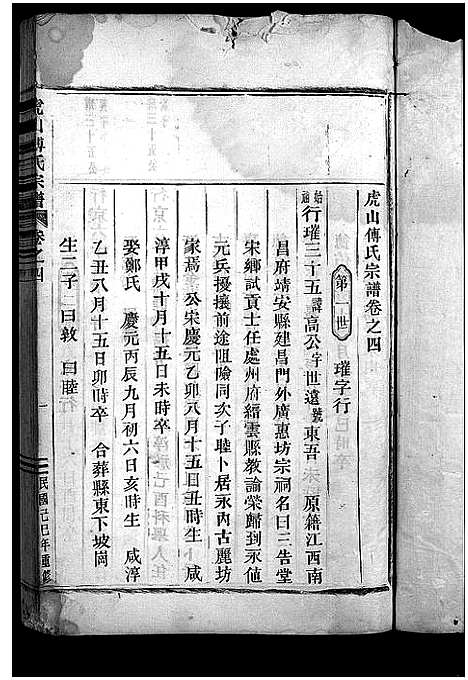 虎山傅氏宗譜卷之四
第一世 璀字行
始祖行璀三十五諱高公字世遠號東吾 原籍江西南
昌府靖安縣建昌門外廣惠坊宗祠名曰三告堂
宋鄉試貢士任處州府縉雲縣教諭榮歸到永値
元兵擾攘前途阻險同次子睦卜居永內古麗坊
家焉 公宋慶元乙卯八月十五日丑時生 咸
淳甲戌十月十五日未時卒
娶鄭氏 慶元丙辰九月初六日亥時生 咸淳
乙丑八月十五日卯時卒 合葬縣東下坡崗
生二子 曰敦 曰睦
虎山傅氏宗譜 卷之四 一 民國己巳年重修